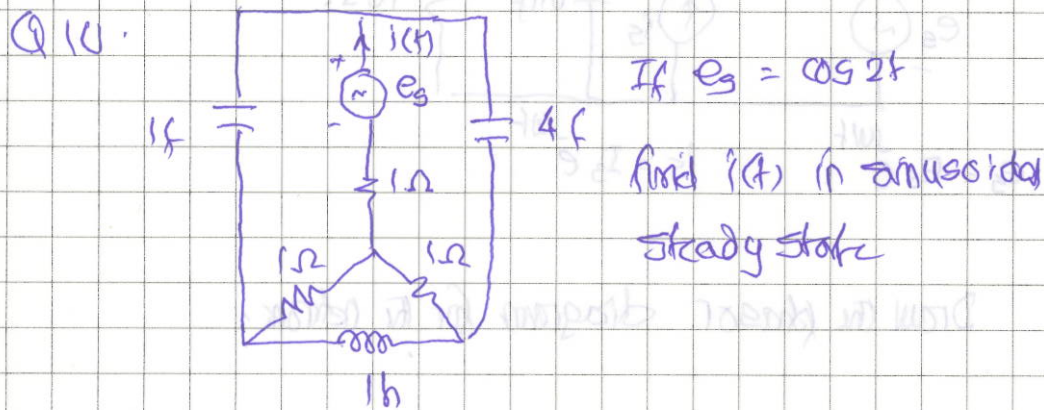 Q 10.
i(t)
+
~ es
-
1f
4f
1Ω
1Ω
1Ω
1h
If es = cos 2t
find i(t) in sinusoidal
steady state